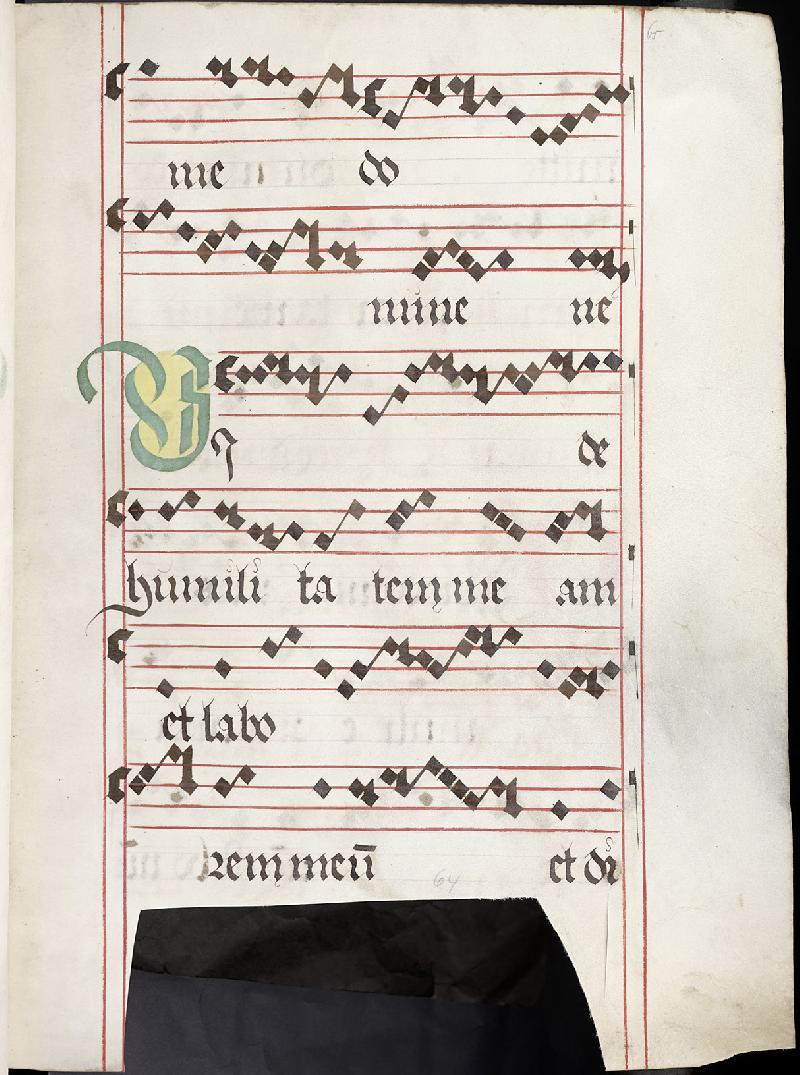 65
me do
mine ne
V j de
humili ta tem me am
et labo
rem meū et di
64